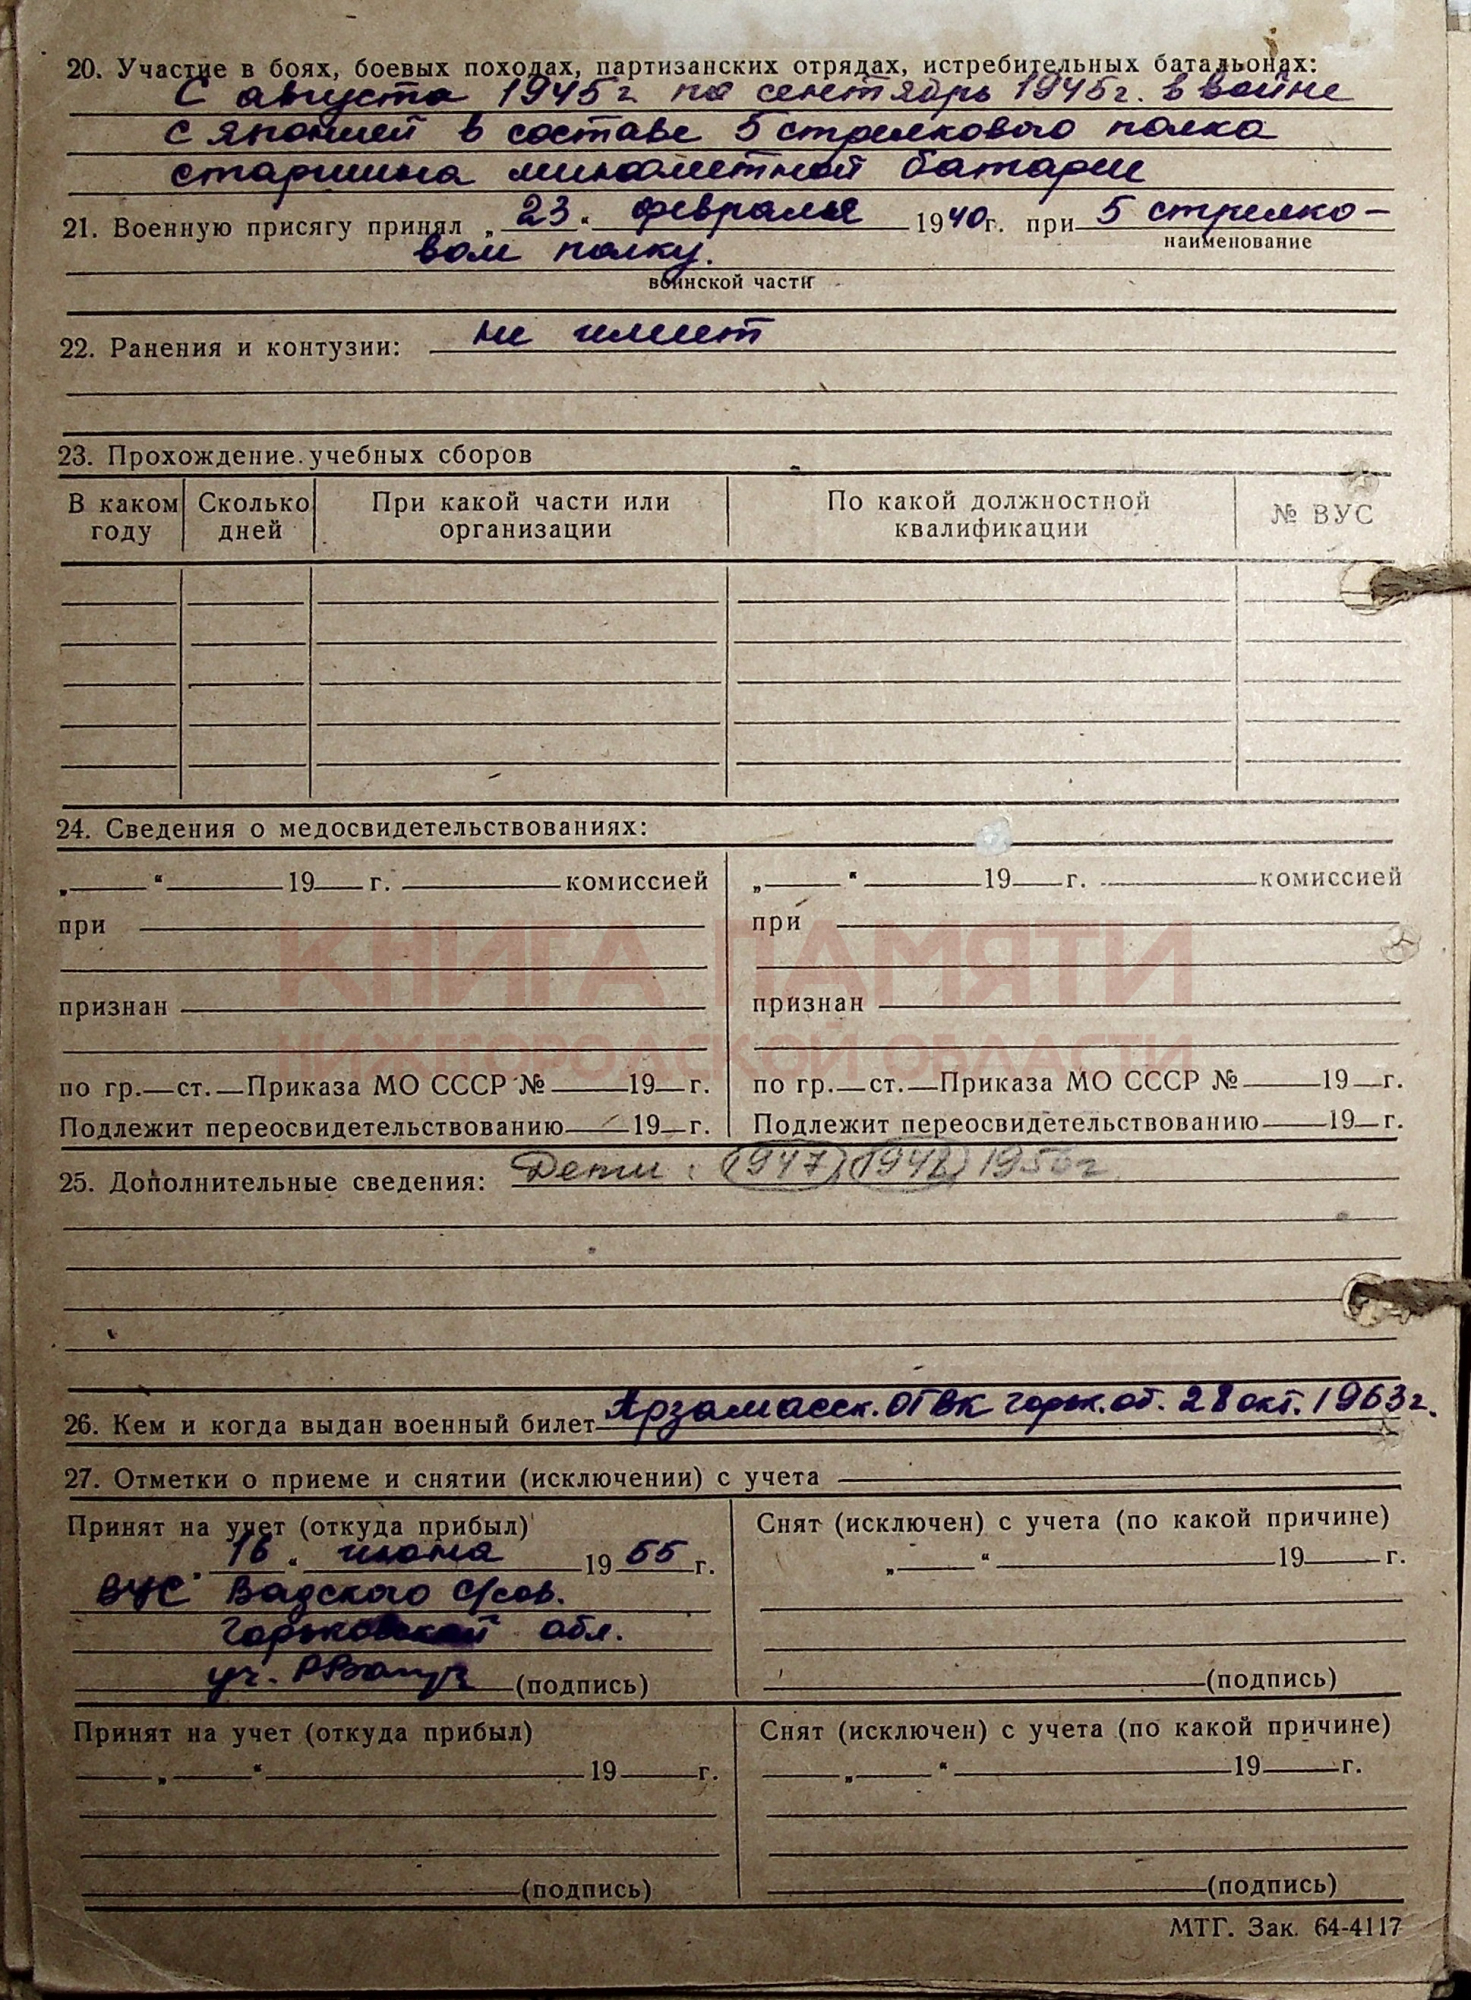 20. Участие в боях, боевых походах, партизанских отрядах, истребительных батальонах:
С августа 1945 г. по сентябрь 1945 г. в войне
с японией в составе 5 стрелкового полка
старшина минометной батареи
21. Военную присягу принял „ 23 “ февраля 1940 г. при 5 стрелко-
наименование
вом полку.
воинской части
22. Ранения и контузии: не имеет
23. Прохождение учебных сборов
В каком году Сколько дней При какой части или организации По какой должностной квалификации № ВУС
24. Сведения о медосвидетельствованиях:
„ “ 19 г. комиссией „ “ 19 г. комиссией
при при
признан признан
КНИГА ПАМЯТИ
НИЖЕГОРОДСКОЙ ОБЛАСТИ
по гр. ст. Приказа МО СССР № 19 г. по гр. ст. Приказа МО СССР № 19 г.
Подлежит переосвидетельствованию 19 г. Подлежит переосвидетельствованию 19 г.
25. Дополнительные сведения: Дети: 1947, г.
26. Кем и когда выдан военный билет Арзамасск. ОГВК горьк. об. 28 окт. 1963 г.
27. Отметки о приеме и снятии (исключении) с учета
Принят на учет (откуда прибыл) Снят (исключен) с учета (по какой причине)
„ 16 “ 19 г. „ “ 19 г.
ВУС Вадского с/сов.
Горьковской обл.
уч. (подпись) (подпись)
Принят на учет (откуда прибыл) Снят (исключен) с учета (по какой причине)
„ “ 19 г. „ “ 19 г.
(подпись) (подпись)
МТГ. Зак. 64-4117